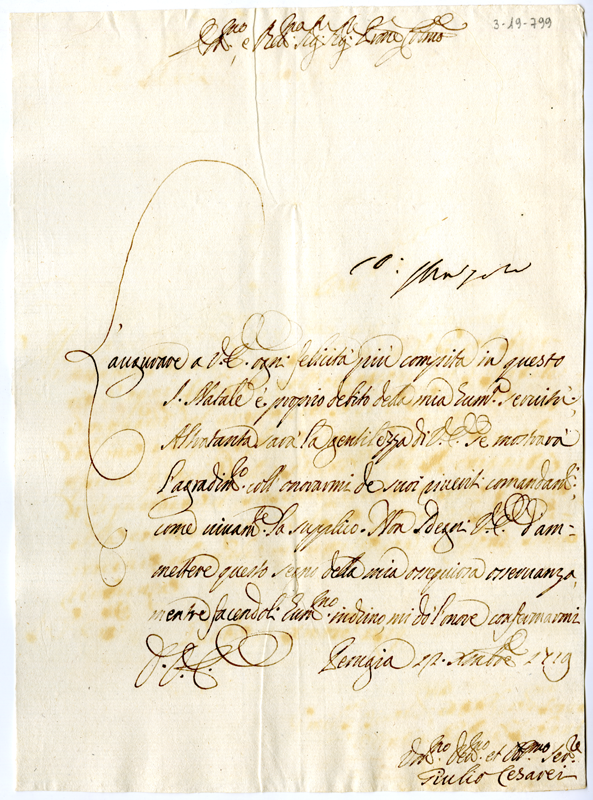 3-19-799
E.mo e Rev.mo Sig.r Sig.r P.rone Col.mo
L'augurare a V. E. ogni felicità più compita in questo
S. Natale è proprio debito della mia hum.a servitù,
Altretanta sarà la gentilezza di V. E. se mostrarà
l'agradim.to coll'onorarmi de suoi riveriti comandam.ti
come vivam.te la supplico. Non sdegni V. E. d'am-
mettere questo segno della mia ossequiosa osservanza,
mentre facendoli hum.mo inchino mi dò l'onore confermarmi
D. V. E.
Perugia 12. Xmbre 1719
Dev.mo et Obb.mo Ser.re
Giulio Cesarei